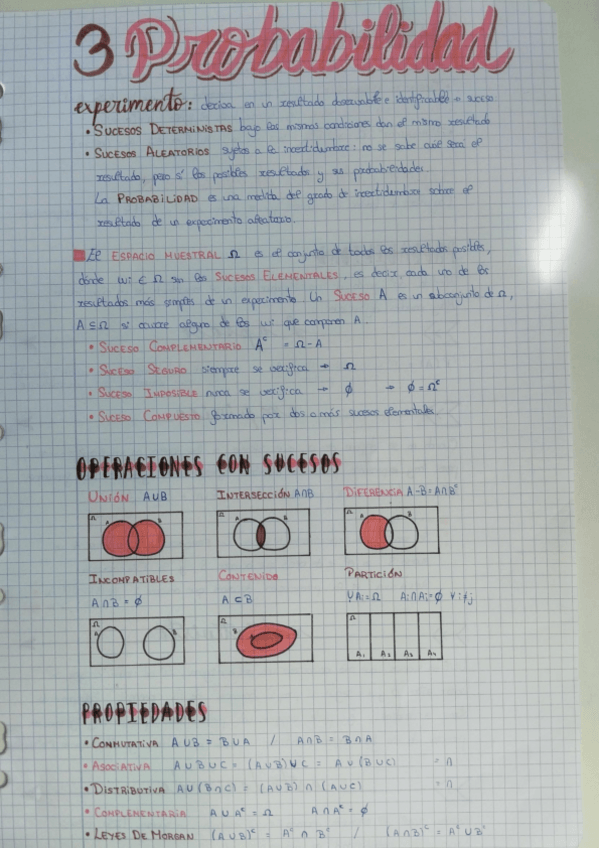 3 Probabilidad
experimento: deriva en un resultado observable e identificable o suceso
• SUCESOS DETERMINISTAS bajo las mismas condiciones dan el mismo resultado
• SUCESOS ALEATORIOS sujetos a la incertidumbre: no se sabe cuál será el
resultado, pero sí los posibles resultados y sus probabilidades.
La PROBABILIDAD es una medida del grado de incertidumbre sobre el
resultado de un experimento aleatorio.
El ESPACIO MUESTRAL Ω es el conjunto de todos los resultados posibles,
donde wi ∈ Ω son los SUCESOS ELEMENTALES, es decir, cada uno de los
resultados más simples de un experimento. Un SUCESO A es un subconjunto de Ω,
A ⊆ Ω si ocurre alguno de los wi que componen A.
• SUCESO COMPLEMENTARIO Aᶜ = Ω - A
• SUCESO SEGURO siempre se verifica → Ω
• SUCESO IMPOSIBLE nunca se verifica → ∅ → ∅ = Ωᶜ
• SUCESO COMPUESTO formado por dos o más sucesos elementales.
OPERACIONES CON SUCESOS
UNIÓN A∪B INTERSECCIÓN A∩B DIFERENCIA A-B = A∩Bᶜ
Ω A B Ω A B Ω A B
INCOMPATIBLES CONTENIDO PARTICIÓN
A∩B = ∅ A ⊂ B ∪Ai = Ω Ai∩Aj = ∅ ∀ i≠j
Ω A B Ω B Ω
A₁ A₂ A₃ A₄
PROPIEDADES
• CONMUTATIVA A∪B = B∪A / A∩B = B∩A
• ASOCIATIVA A∪B∪C = (A∪B)∪C = A∪(B∪C) = ∩
• DISTRIBUTIVA A∪(B∩C) = (A∪B)∩(A∪C) = ∩
• COMPLEMENTARIA A∪Aᶜ = Ω A∩Aᶜ = ∅
• LEYES DE MORGAN (A∪B)ᶜ = Aᶜ∩Bᶜ / (A∩B)ᶜ = Aᶜ∪Bᶜ